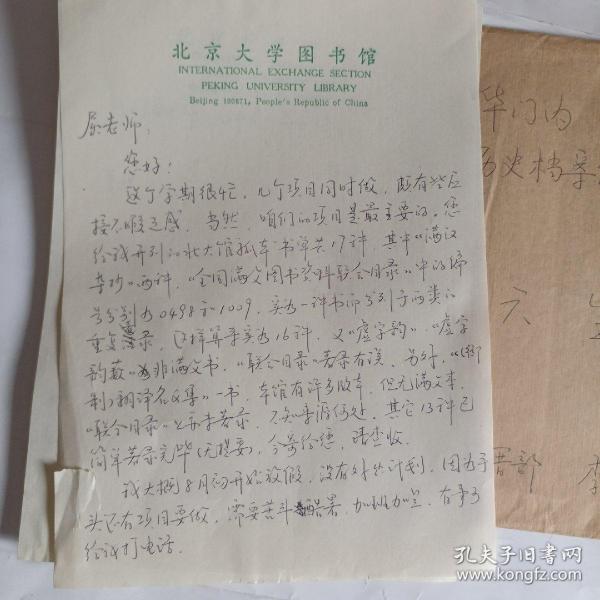 北京大学图书馆
INTERNATIONAL EXCHANGE SECTION
PEKING UNIVERSITY LIBRARY
Beijing 100871, People's Republic of China
屈老师:
您好!
这个学期很忙,几个项目同时做,颇有些应
接不暇之感。当然,咱们的项目是最主要的。您
给我开列的北大馆孤本书单共17种,其中“满汉
杂抄”两种,《全国满文图书资料联合目录》中的编
号分别为0498和1009,实为一种书而分列于两类的
重复著录,这样算来实为16种,又“虚字韵”、“虚字
韵薮”为非满文书,“联合目录”著录有误,另外,“(御
制)翻译名义集”一书,本馆有许多版本,但无满文本,
“联合目录”上亦未著录,不知来源何处,其它13种已
简单著录完毕(无提要),今寄给您,请查收。
我大概8月初开始放假,没有外出计划,因为手
头还有项目要做,需要苦斗酷暑,加班加点,有事可
给我打电话。
华门内
历史档案
六
部
李
孔夫子旧书网
www.kongfz.com